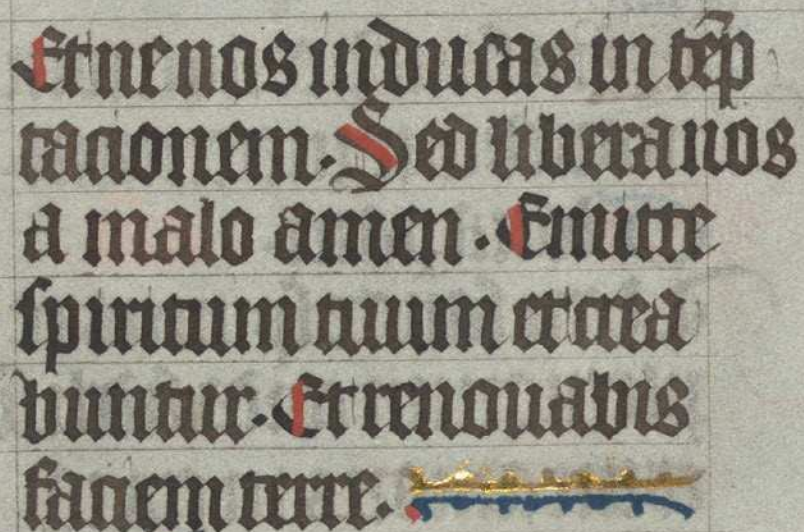 Et ne nos inducas in tēp
tacionem. Sed libera nos
a malo amen. Emitte
spiritum tuum et crea
buntur. Et renouabis
faciem terre.